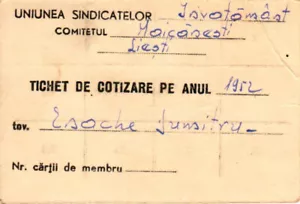 UNIUNEA SINDICATELOR Învățământ
COMITETUL
Liești
TICHET DE COTIZARE PE ANUL 1952
tov. Enache Dumitru
Nr. cărții de membru